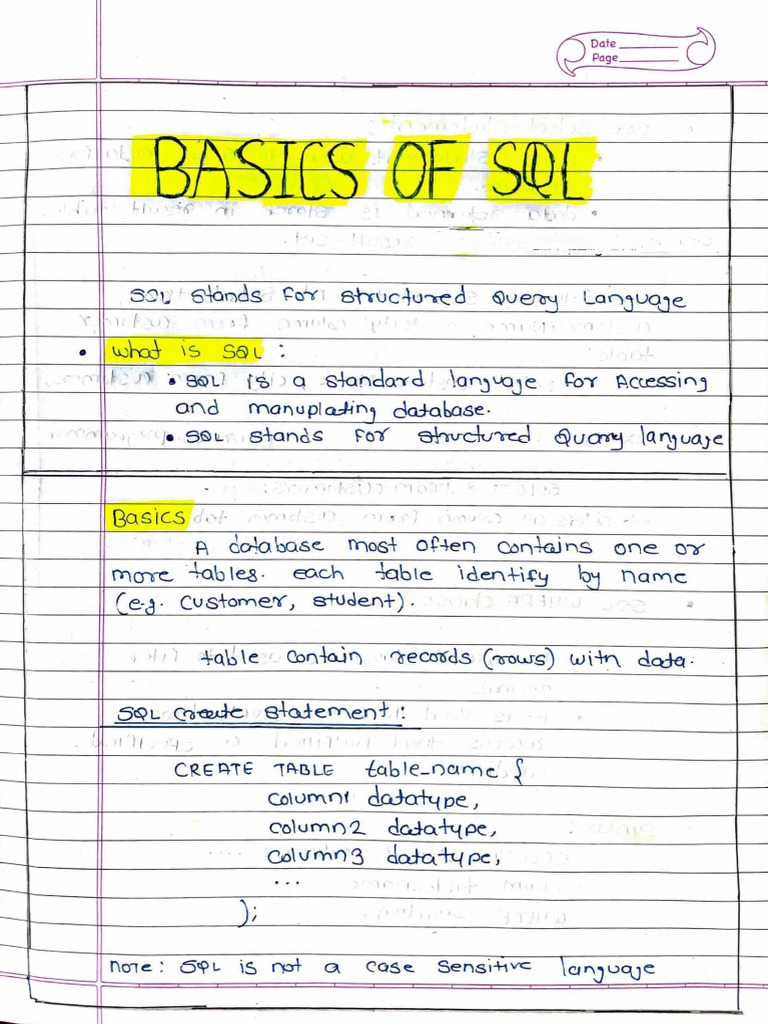 Date
Page
BASICS OF SQL
SQL stands for structured Query Language
• What is SQL :
• SQL is a standard language for Accessing
and manuplating database.
• SQL stands for structured Query language
Basics
A database most often contains one or
more tables. each table identify by name
(e.g. customer, student).
table contain records (rows) with data.
SQL create statement :
CREATE TABLE table_name {
column1 datatype,
column2 datatype,
column3 datatype,
...
);
note : SQL is not a case sensitive language